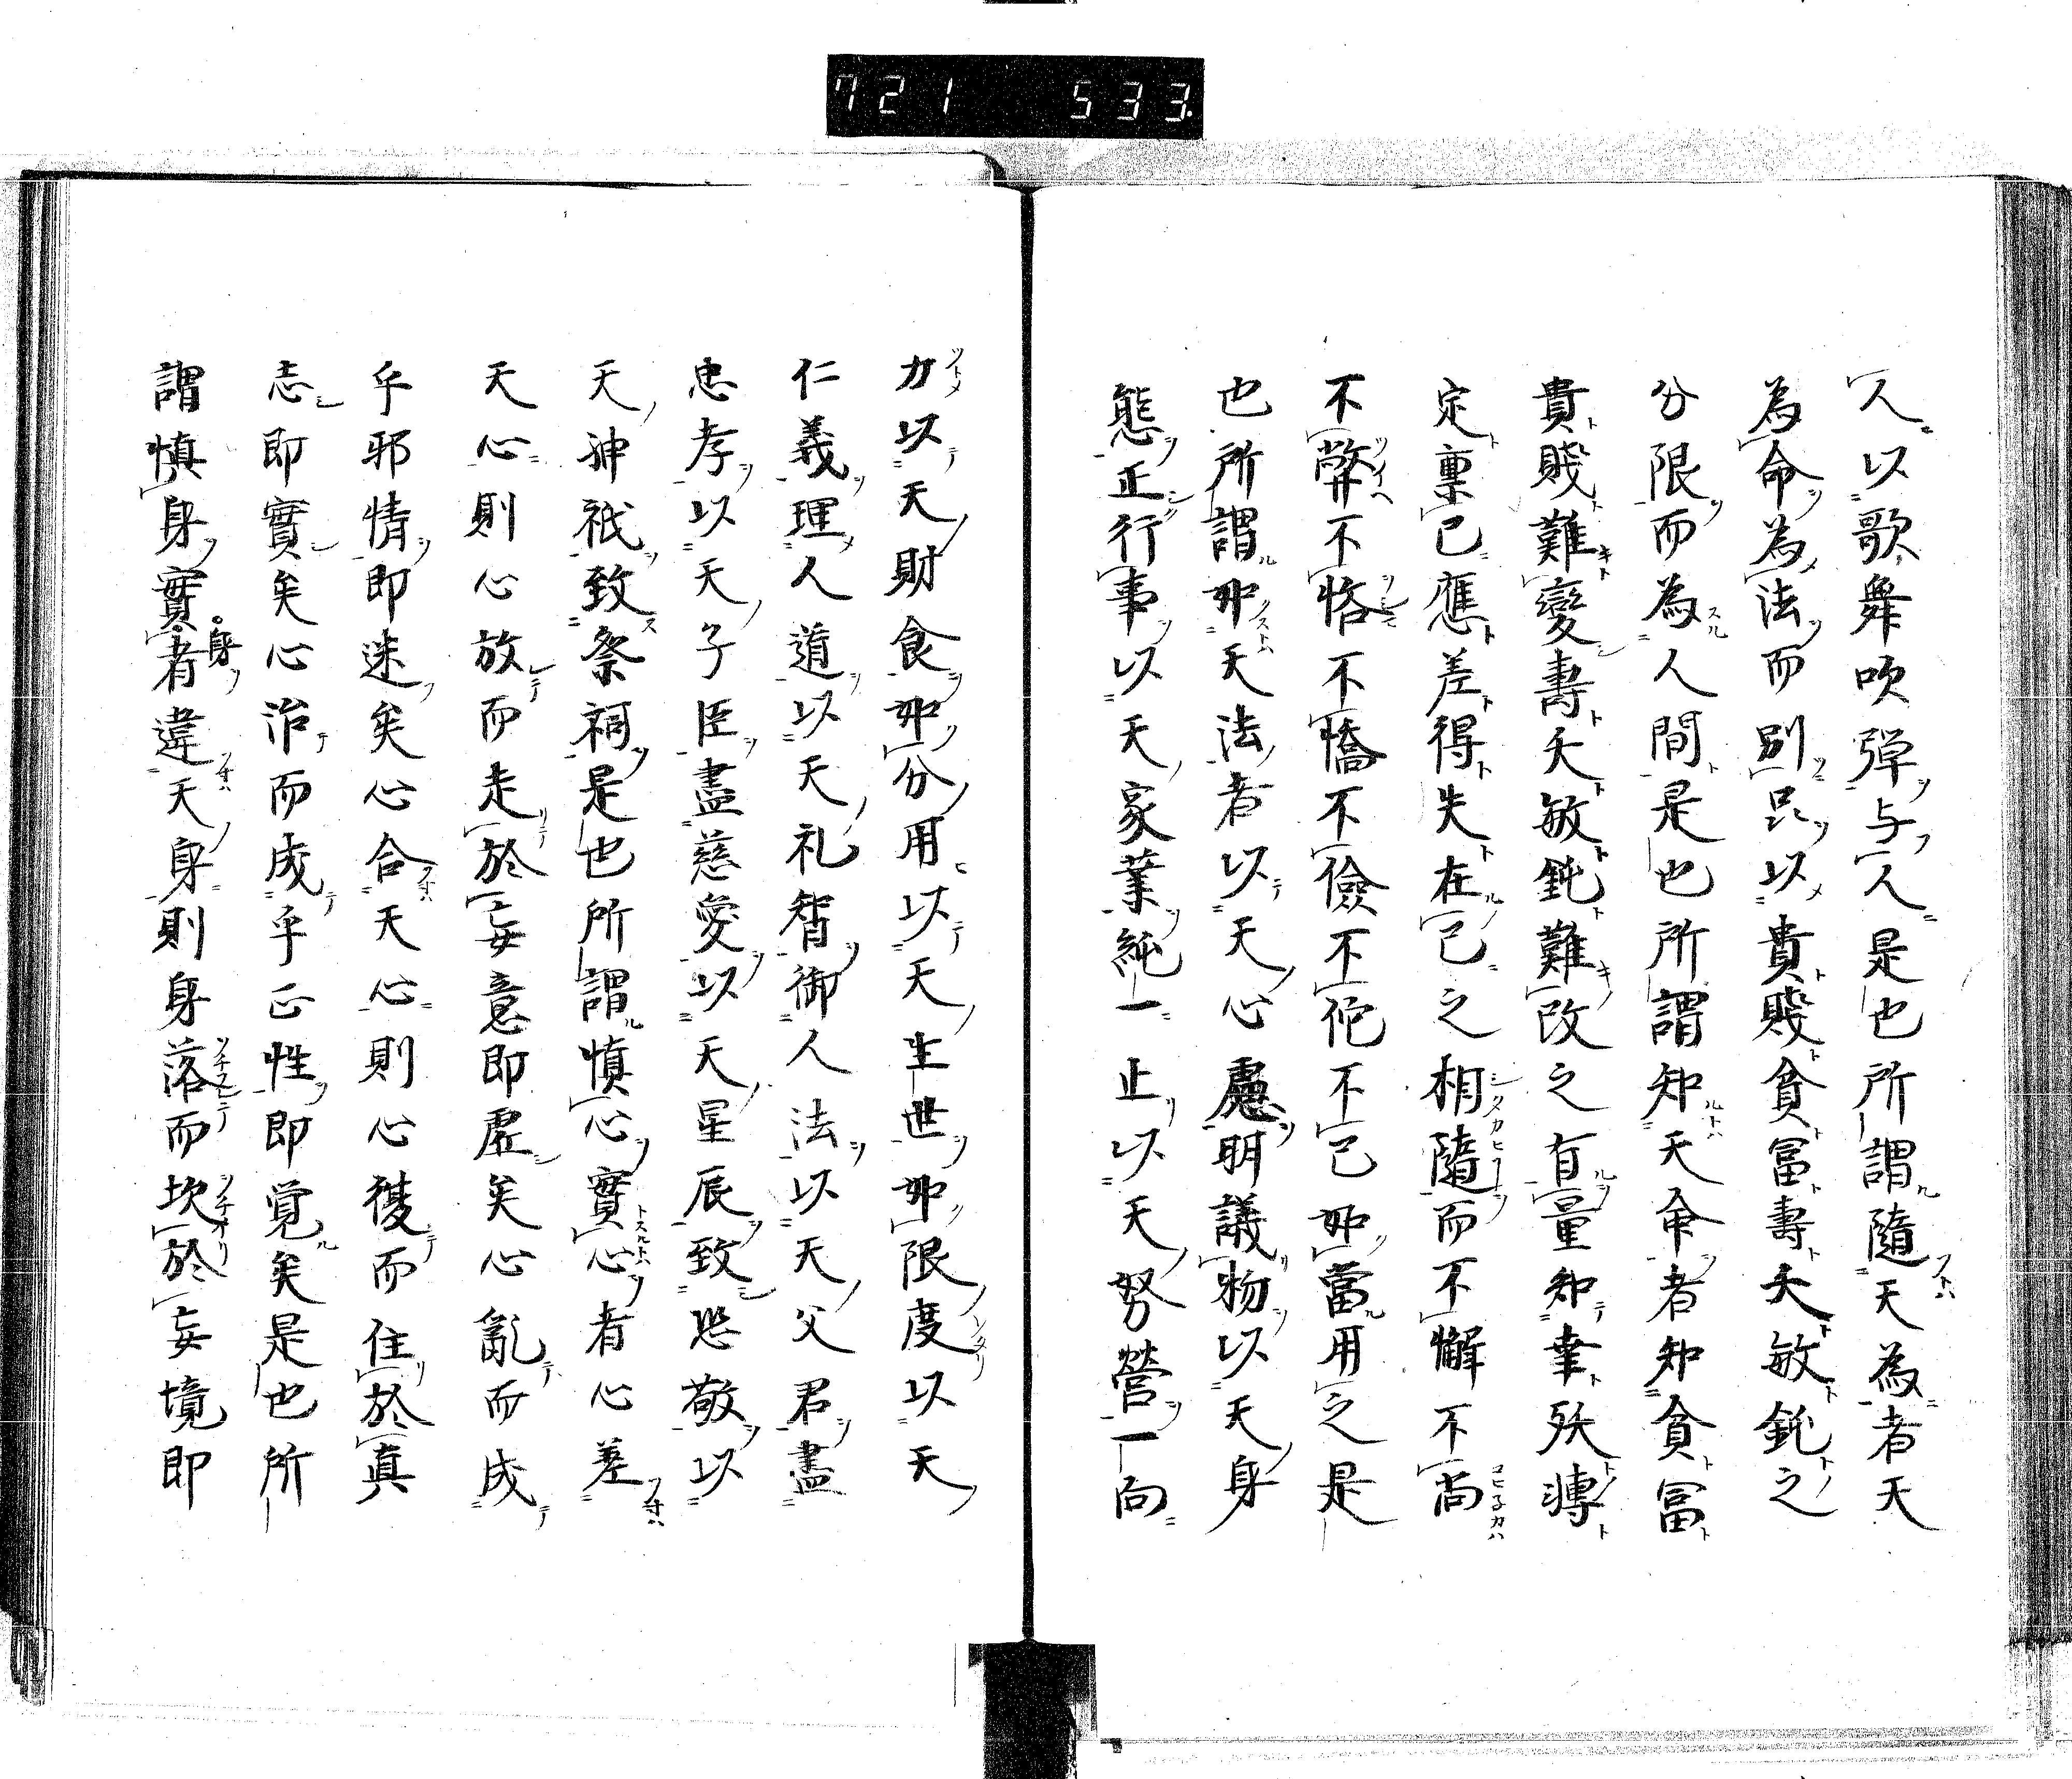 721 533
人以歌舞吹弾与人是也所謂隨天為者天
為命為法而別品以貴賤貧冨壽夭敏鈍之
分限而為人間是也所謂知天命者知貧冨
貴賤難變壽夭敏鈍難改之有量知幸殀
定稟已應差得失在己之相隨而不懈不
不弊不悋不憍不儉不佗不己如當用之是
也所謂如天法者以天心慮明議物以天身
態正行事以天家業純一止以天努營一向
力以天財食如分用以天生世如限度以天
仁義理人道以天礼智御人法以天父君盡
忠孝以天子臣盡慈愛以天星辰致恐敬以
天神祇致祭祠是也所謂慎心實心者心差
天心則心放而走於妄意即虛矣心亂而成
乎邪情即迷矣心合天心則心復而住於真
志即實矣心治而成乎正性即覚矣是也所
謂慎身實身者違天身則身落而坎於妄境即